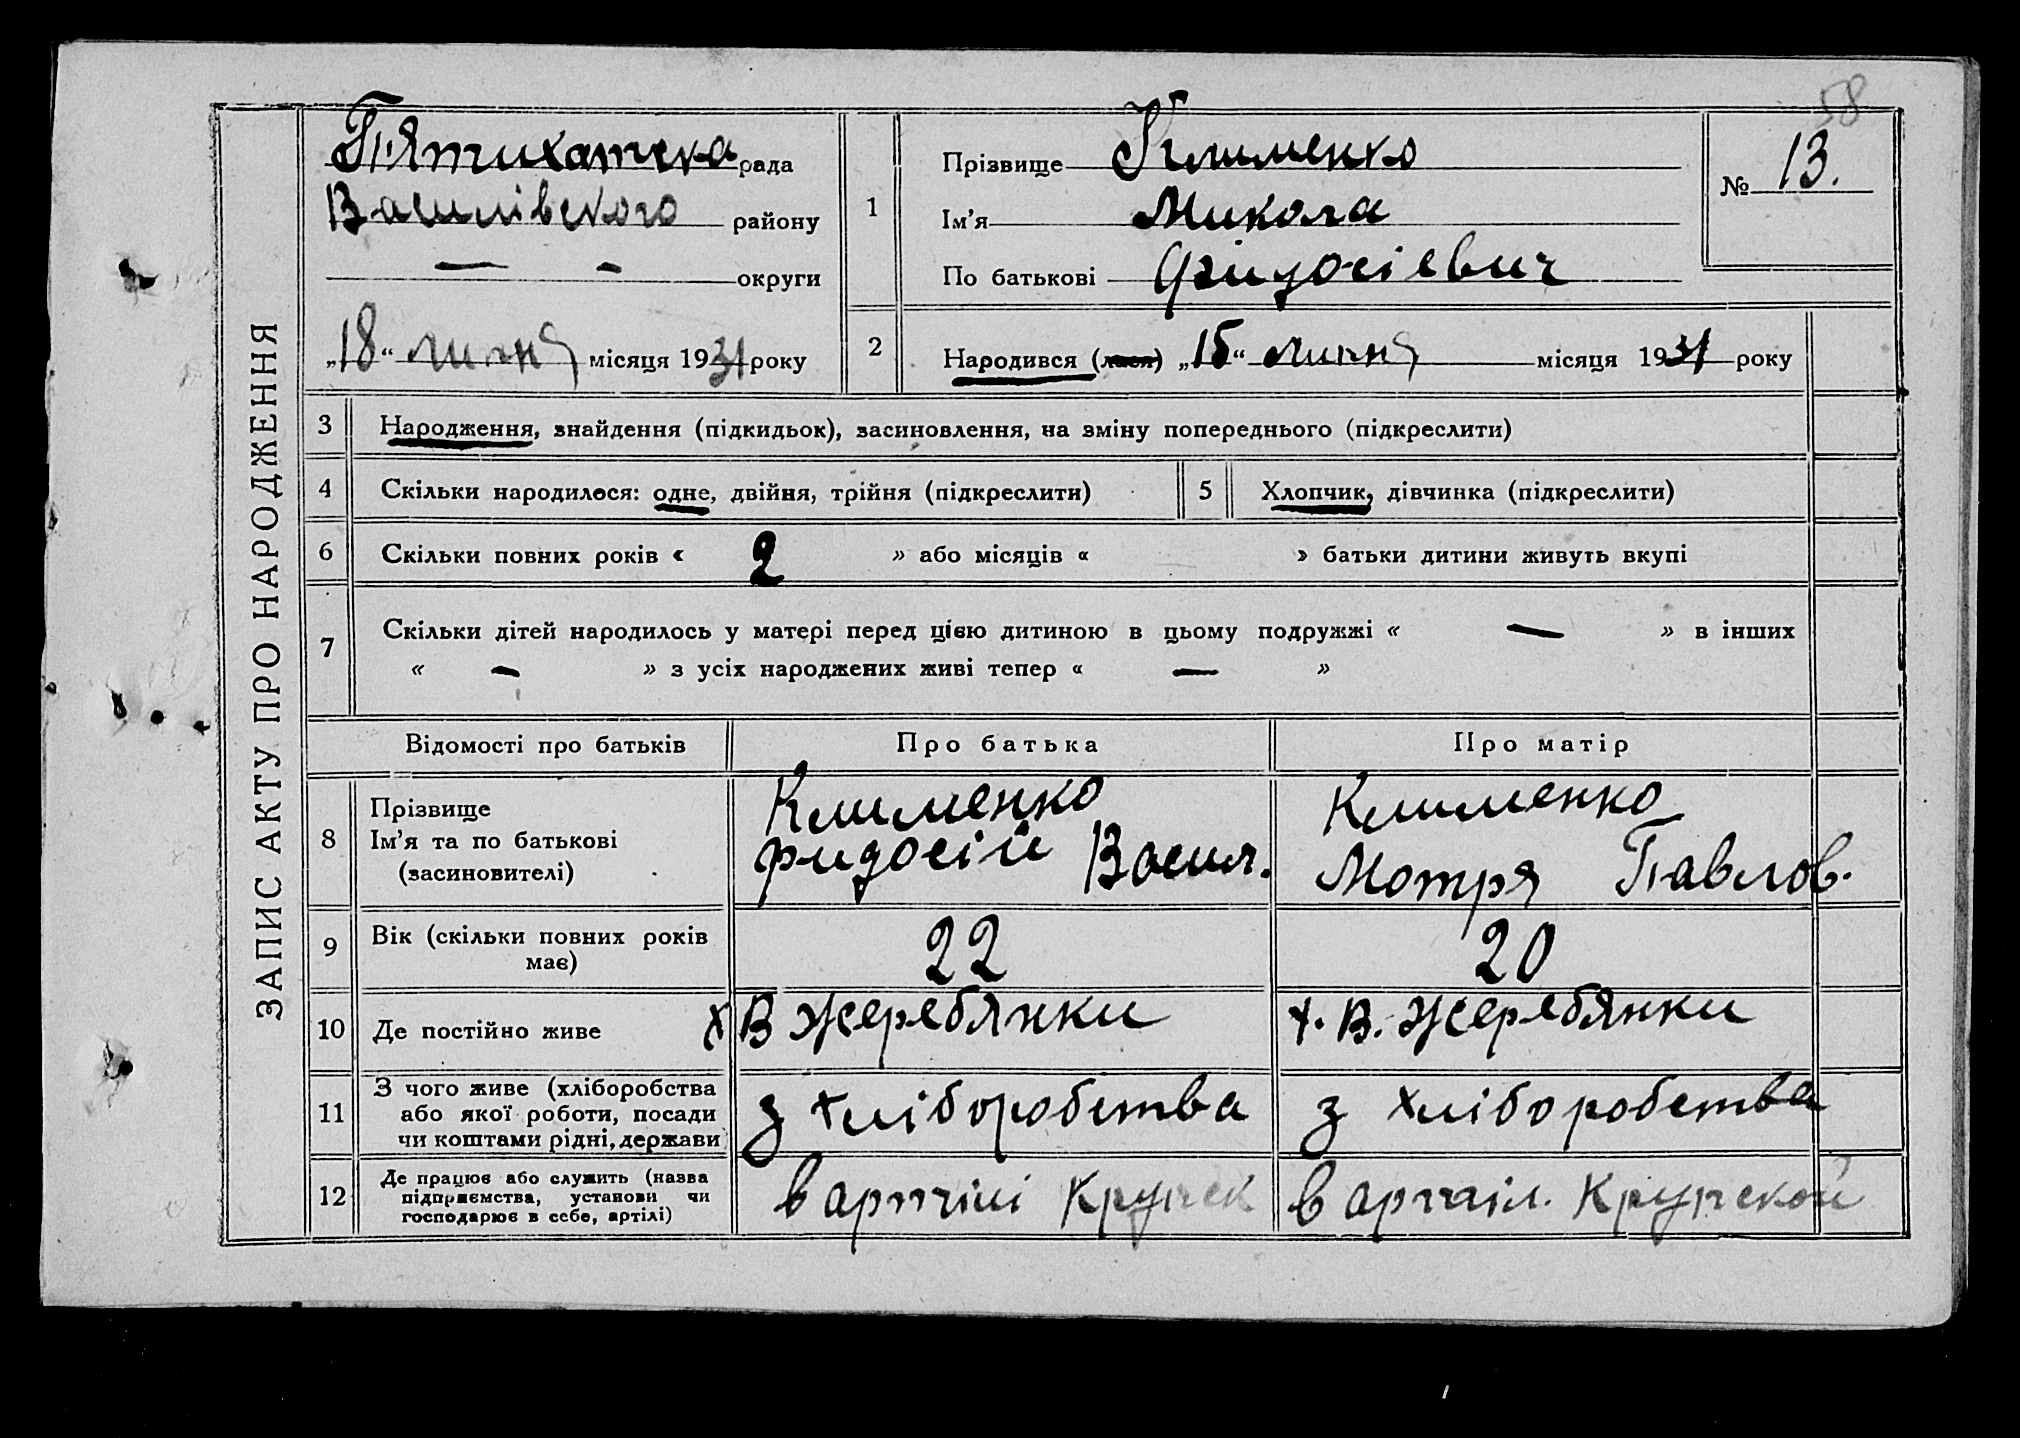 58
ЗАПИС АКТУ ПРО НАРОДЖЕННЯ
П'ятихатська рада
Василівського району
— - округи
„18“ липня місяця 1931 року
1
Прізвище Клименко
Ім'я Микола
По батькові Фидосієвич
№ 13.
2 Народився (лася) „15“ липня місяця 1931 року
3 Народження, знайдення (підкидьок), засиновлення, на зміну попереднього (підкреслити)
4 Скільки народилося: одне, двійня, трійня (підкреслити) 5 Хлопчик, дівчинка (підкреслити)
6 Скільки повних років « 2 » або місяців « » батьки дитини живуть вкупі
7 Скільки дітей народилось у матері перед цією дитиною в цьому подружжі « — » в інших
« — » з усіх народжених живі тепер « — »
Відомості про батьків Про батька Про матір
8 Прізвище
Ім'я та по батькові
(засиновителі)
Клименко
Фидосій Васил.
Клименко
Мотря Павлов.
9 Вік (скільки повних років
має)
22 20
10 Де постійно живе х В Жеребянки х. В. Жеребянки
11 З чого живе (хліборобства
або якої роботи, посади
чи коштами рідні, держави
з хліборобства з хліборобства
12 Де працює або служить (назва
підприємства, установи чи
господарює в себе, артілі)
в артілі Крупск в артіл. Крупской